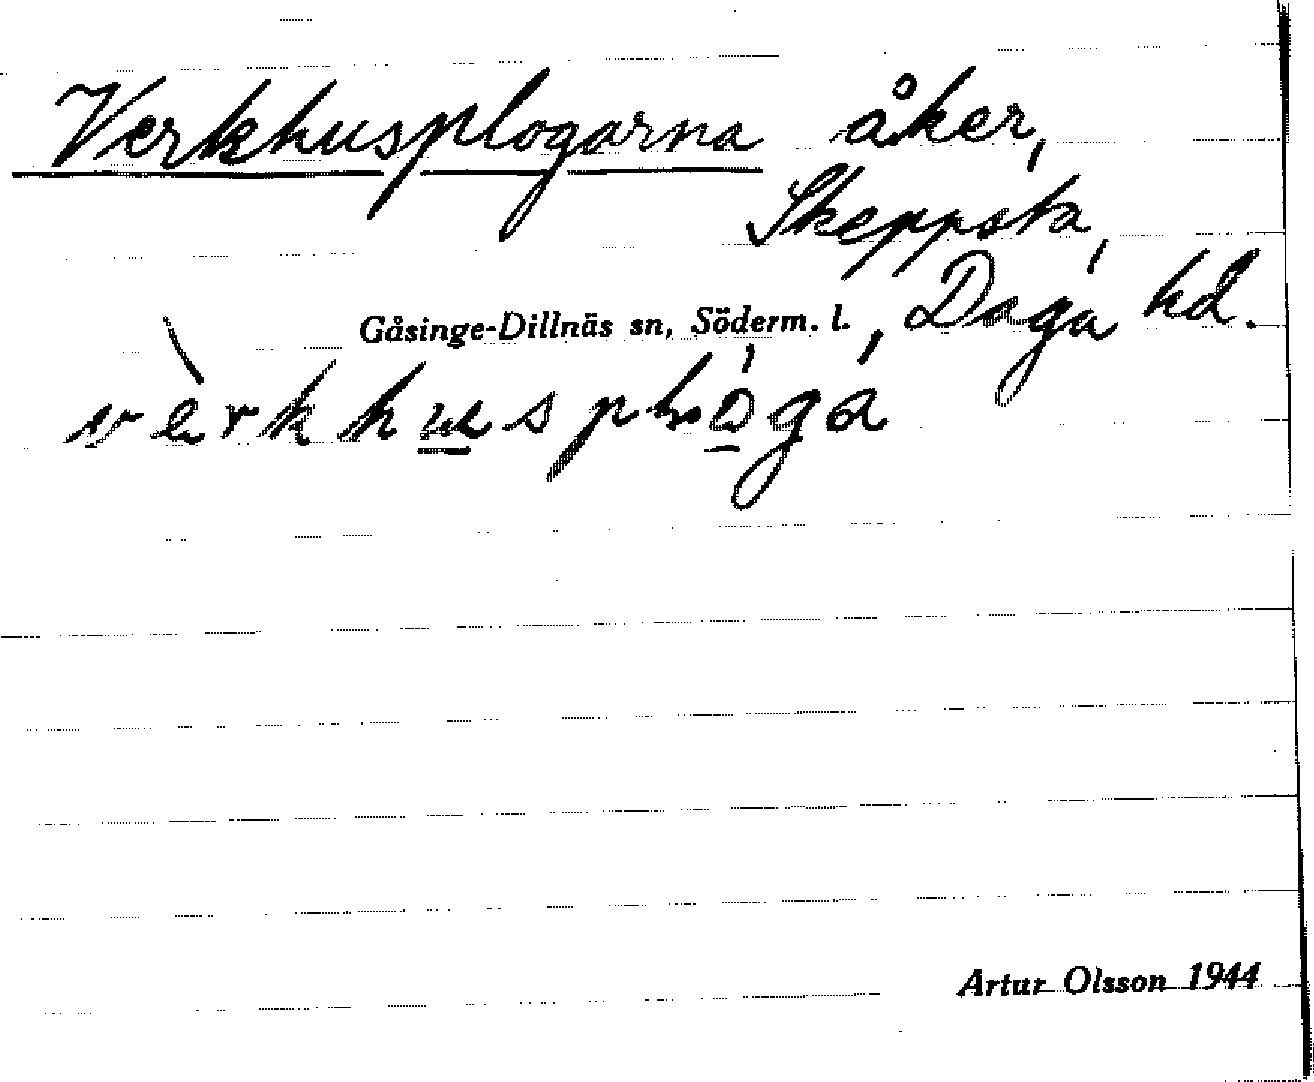 Verkhusplogarna åker,
Skeppsta,
Gåsinge-Dillnäs sn, Söderm. l., Daga hd.
Artur Olsson 1944